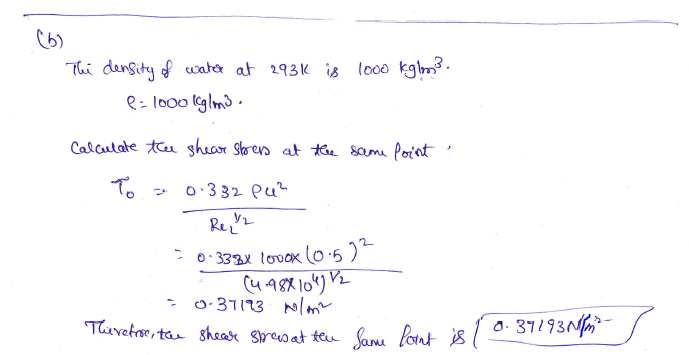 (b)
The density of water at 293K is 1000 kg/m³.
ρ = 1000 kg/m³.
Calculate the shear stress at the same point.
τ₀ = 0.332 ρu²
Re_L^1/2
= 0.332 x 1000x (0.5)²
(4.98x10⁴)^1/2
= 0.37193 N/m²
Therefore, the shear stress at the same point is 0.37193 N/m²